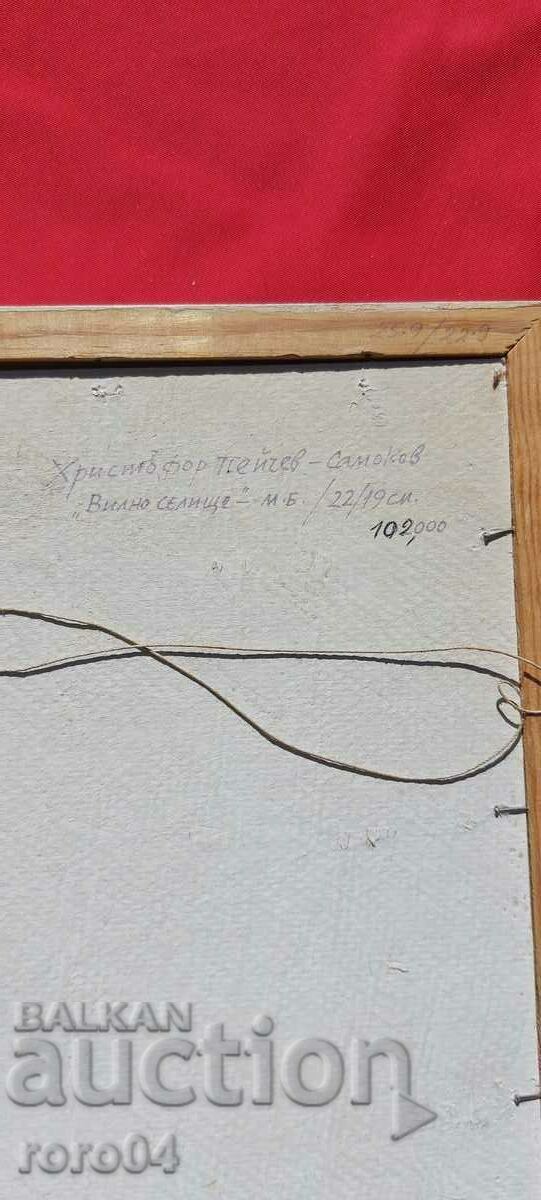 25.9/22.9
Христофор Пейчев - Самоков
"Вилно селище" - М.Б. /22/19см.
102,000
BALKAN
auction
roro04